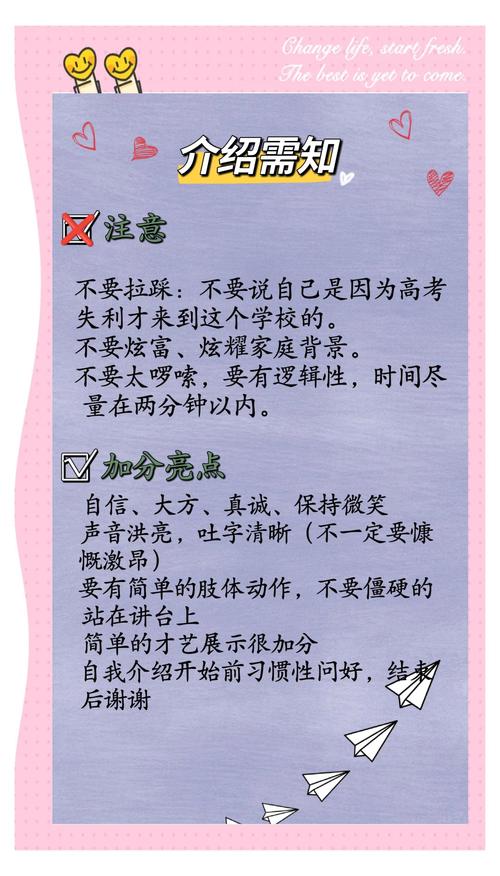 Change life, start fresh.
The best is yet to come.
介绍需知
注意
不要拉踩：不要说自己是因为高考
失利才来到这个学校的。
不要炫富、炫耀家庭背景。
不要太啰嗦，要有逻辑性，时间尽
量在两分钟以内。
加分亮点
自信、大方、真诚、保持微笑
声音洪亮，吐字清晰（不一定要慷
慨激昂）
要有简单的肢体动作，不要僵硬的
站在讲台上
简单的才艺展示很加分
自我介绍开始前习惯性问好，结束
后谢谢